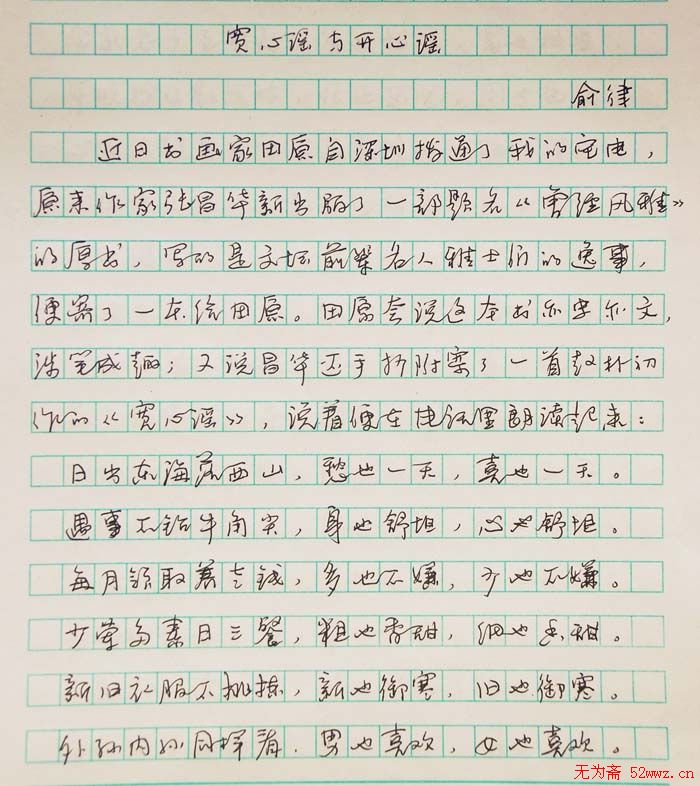 宽心谣与开心谣
俞律
近日书画家田原自深圳拨通了我的宅电，
原来作家张昌华新出版了一部题名《曾经风雅》
的厚书，写的是文坛前辈名人雅士们的逸事，
便寄了一本给田原。田原夸说这本书亦史亦文，
涉笔成趣；又说昌华还手抄附寄了一首赵朴初
作的《宽心谣》，说着便在电话里朗读起来：
日出东海落西山，愁也一天，喜也一天。
遇事不钻牛角尖，身也舒坦，心也舒坦。
每月领取养老钱，多也不嫌，少也不嫌。
少荤多素日三餐，粗也香甜，细也香甜。
新旧衣服不挑拣，新也御寒，旧也御寒。
外孙内孙同样看，男也喜欢，女也喜欢。
无为斋 52wwz.cn